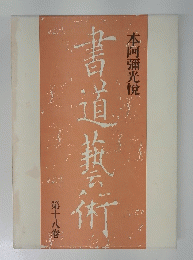 本阿彌光悅
書道藝術
第十八巻